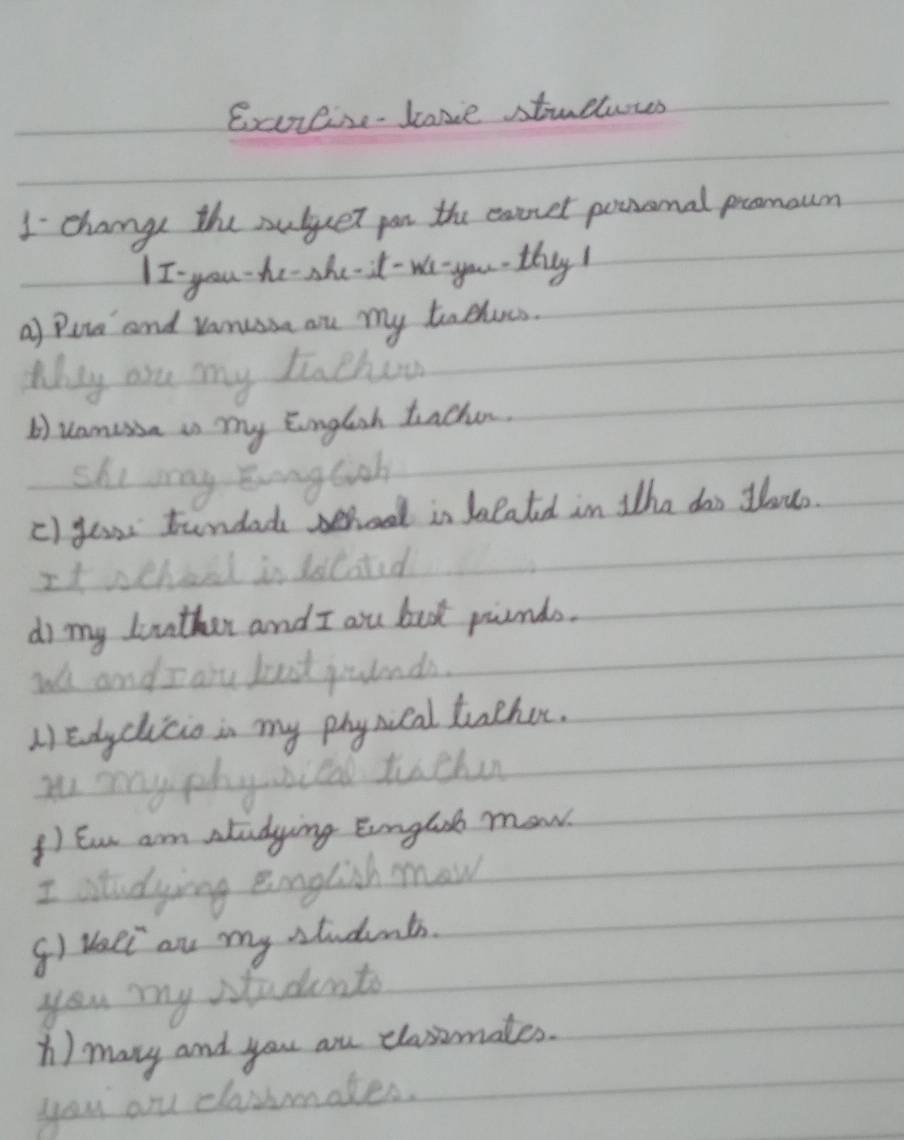 Exercise - basic structures
1- Change the subject for the correct personal pronoun
| I - you - he - she - it - we - you - they |
a) Pira and Vanessa are my teachers.
they are my teachers
b) Vanessa is my English teacher.
She my English
c) Jessi trindade school is located in Ilha das Flores.
It school is located
d) my brother and I are best friends.
We and I are best friends.
e) Edyclécio is my physical teacher.
He my physical teacher
f) Eu am studying English now.
I studying English now
g) Você are my students.
you my students
h) mary and you are classmates.
you are classmates.